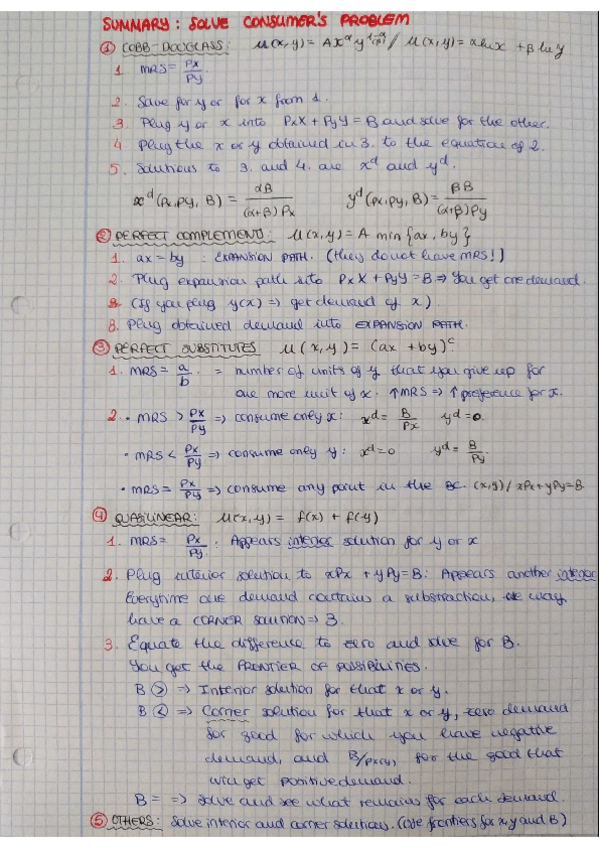 SUMMARY: SOLVE CONSUMER'S PROBLEM
① COBB-DOUGLASS: u(x,y) = A x^α y^(1-α) / u(x,y) = α ln x + β ln y
1. MRS = Px/Py.
2. Solve for y or for x from 1.
3. Plug y or x into PxX + PyY = B and solve for the other.
4. Plug the x or y obtained in 3. to the equation of 2.
5. Solutions to 3. and 4. are x^d and y^d.
x^d (Px, Py, B) = αB/(α+β)Px y^d (Px, Py, B) = βB/(α+β)Py
② PERFECT COMPLEMENTS: u(x,y) = A min{ax, by}
1. ax = by : EXPANSION PATH. (they do not have MRS!)
2. Plug expansion path into PxX + PyY = B ⇒ You get one demand.
(If you plug y(x) ⇒ get demand of x)
3. Plug obtained demand into EXPANSION PATH.
③ PERFECT SUBSTITUTES u(x,y) = (ax + by)^c
1. MRS = a/b. = number of units of y that you give up for
one more unit of x. ↑MRS ⇒ ↑ preference for x.
2. • MRS > Px/Py ⇒ consume only x: x^d = B/Px y^d = 0.
• MRS < Px/Py ⇒ consume only y: x^d = 0 y^d = B/Py.
• MRS = Px/Py ⇒ consume any point in the BC. (x,y) / xPx + yPy = B
④ QUASILINEAR: u(x,y) = f(x) + f(y)
1. MRS = Px/Py : Appears interior solution for y or x
2. Plug interior solution to xPx + yPy = B: Appears another interior
Everytime one demand contains a substraction, we may
have a CORNER SOLUTION ⇒ 3.
3. Equate the difference to zero and solve for B.
You get the FRONTIER OF POSSIBILITIES.
B > ⇒ Interior solution for that x or y.
B < ⇒ Corner solution for that x or y, zero demand
for good for which you have negative
demand, and B/Px(y) for the good that
will get positive demand.
B = ⇒ solve and see what remains for each demand.
⑤ OTHERS: Solve interior and corner solutions. (Use frontiers for x, y and B)